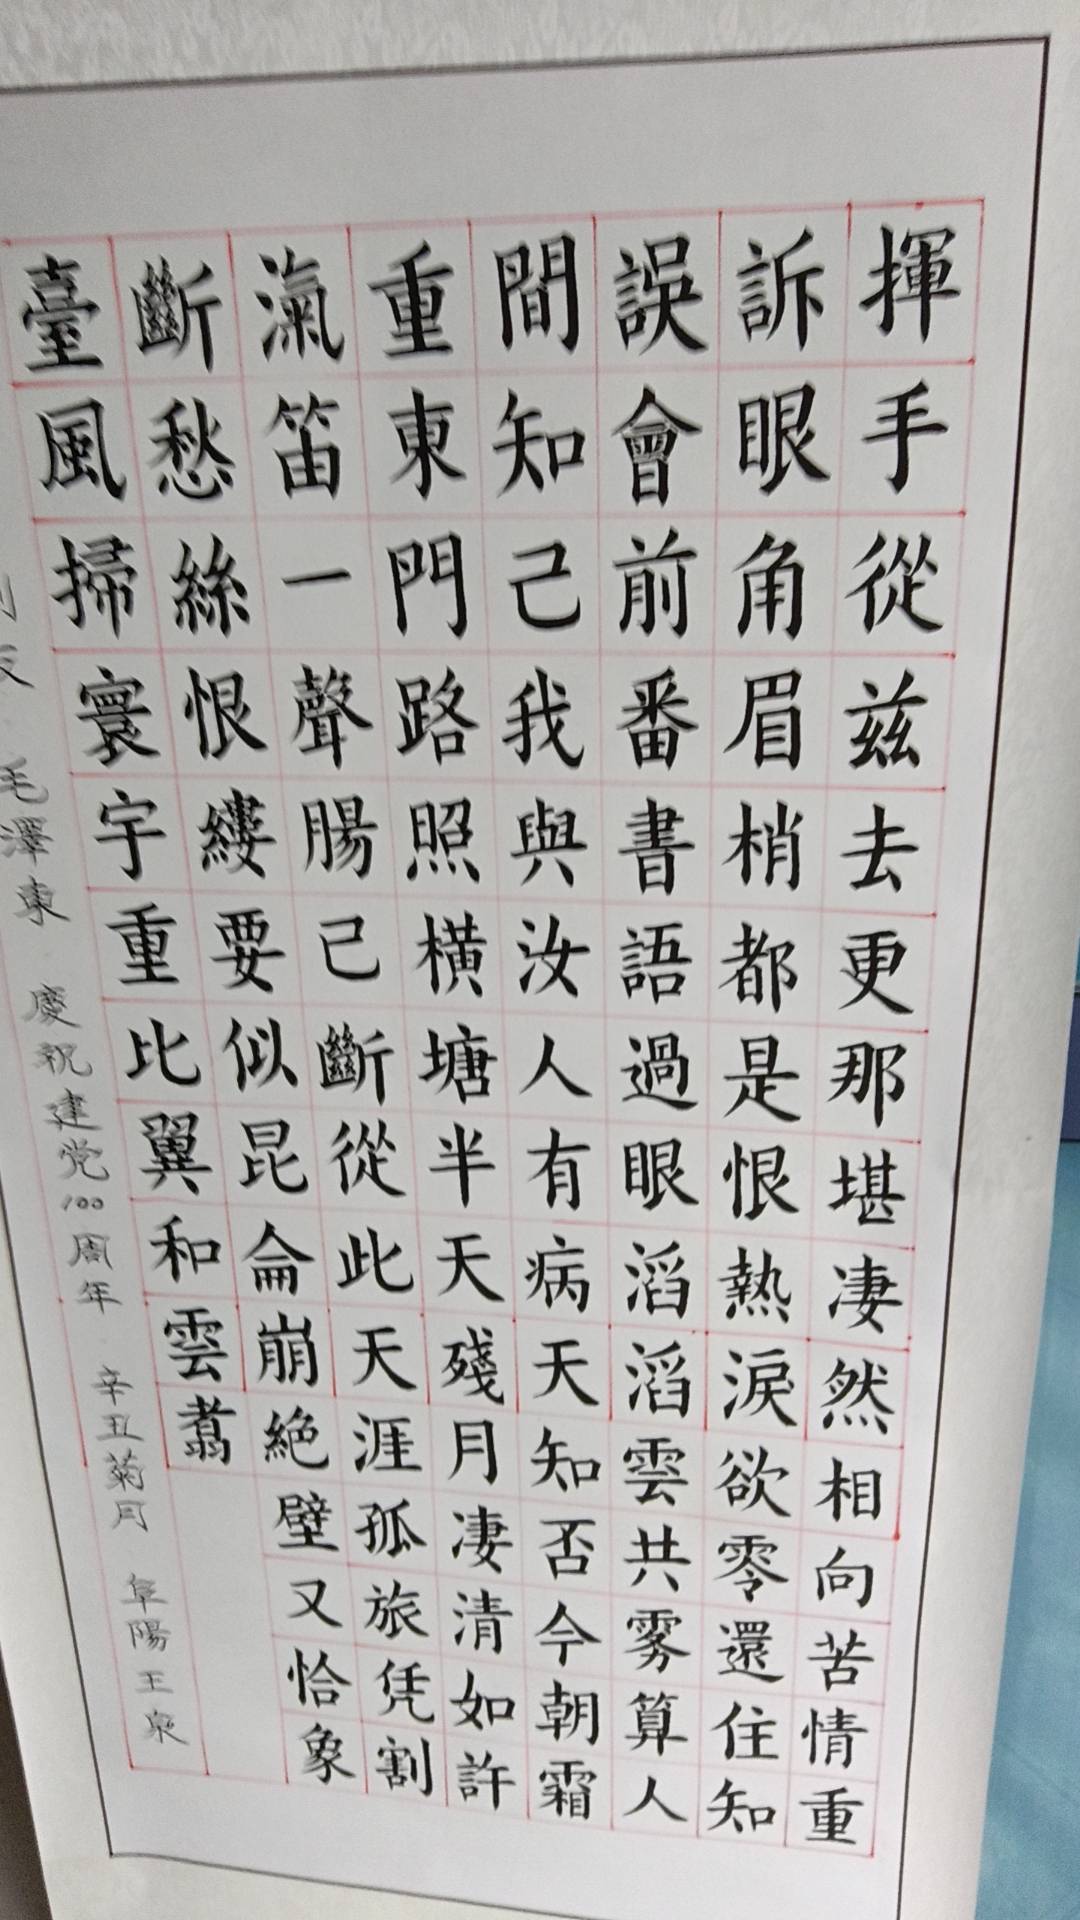 揮手從茲去更那堪凄然相向苦情重
訴眼角眉梢都是恨熱淚欲零還住知
誤會前番書語過眼滔滔雲共雾算人
間知己我與汝人有病天知否今朝霜
重東門路照橫塘半天殘月凄清如許
滊笛一聲腸已斷從此天涯孤旅凭割
斷愁絲恨縷要似昆侖崩絕壁又恰象
臺風掃寰宇重比翼和雲翥
毛澤東 慶祝建党100周年 辛丑菊月 阜陽王泉